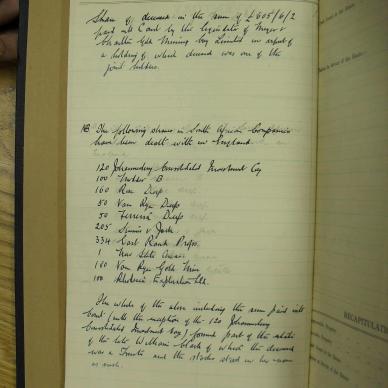 Share of deceased in the sum of £605/6/2
paid into Court by the liquidators of Meyer &
Charlton Gold Mining Coy Limited in respect of
a holding of which deceased was one of the
joint holders.
NB The following shares in South African Companies
have been dealt with in England.
120 Johannesburg Consolidated Investment Coy
100 B
160 Rose Deep
50 Van Ryn Deep
50 Ferreira Deep
205 Simmer & Jack
334 East Rand Props.
1 New State Areas
180 Van Ryn Gold Mine
100 Rhodesia Exploration Ltd.
The whole of the above including the sum paid into
Court (with the exception of the 120 Johannesburg
Consolidated Investment Coy) formed part of the estate
of the late William Black of which the deceased
was a Trustee and the stocks stood in her name
as such.
RECAPITULATI